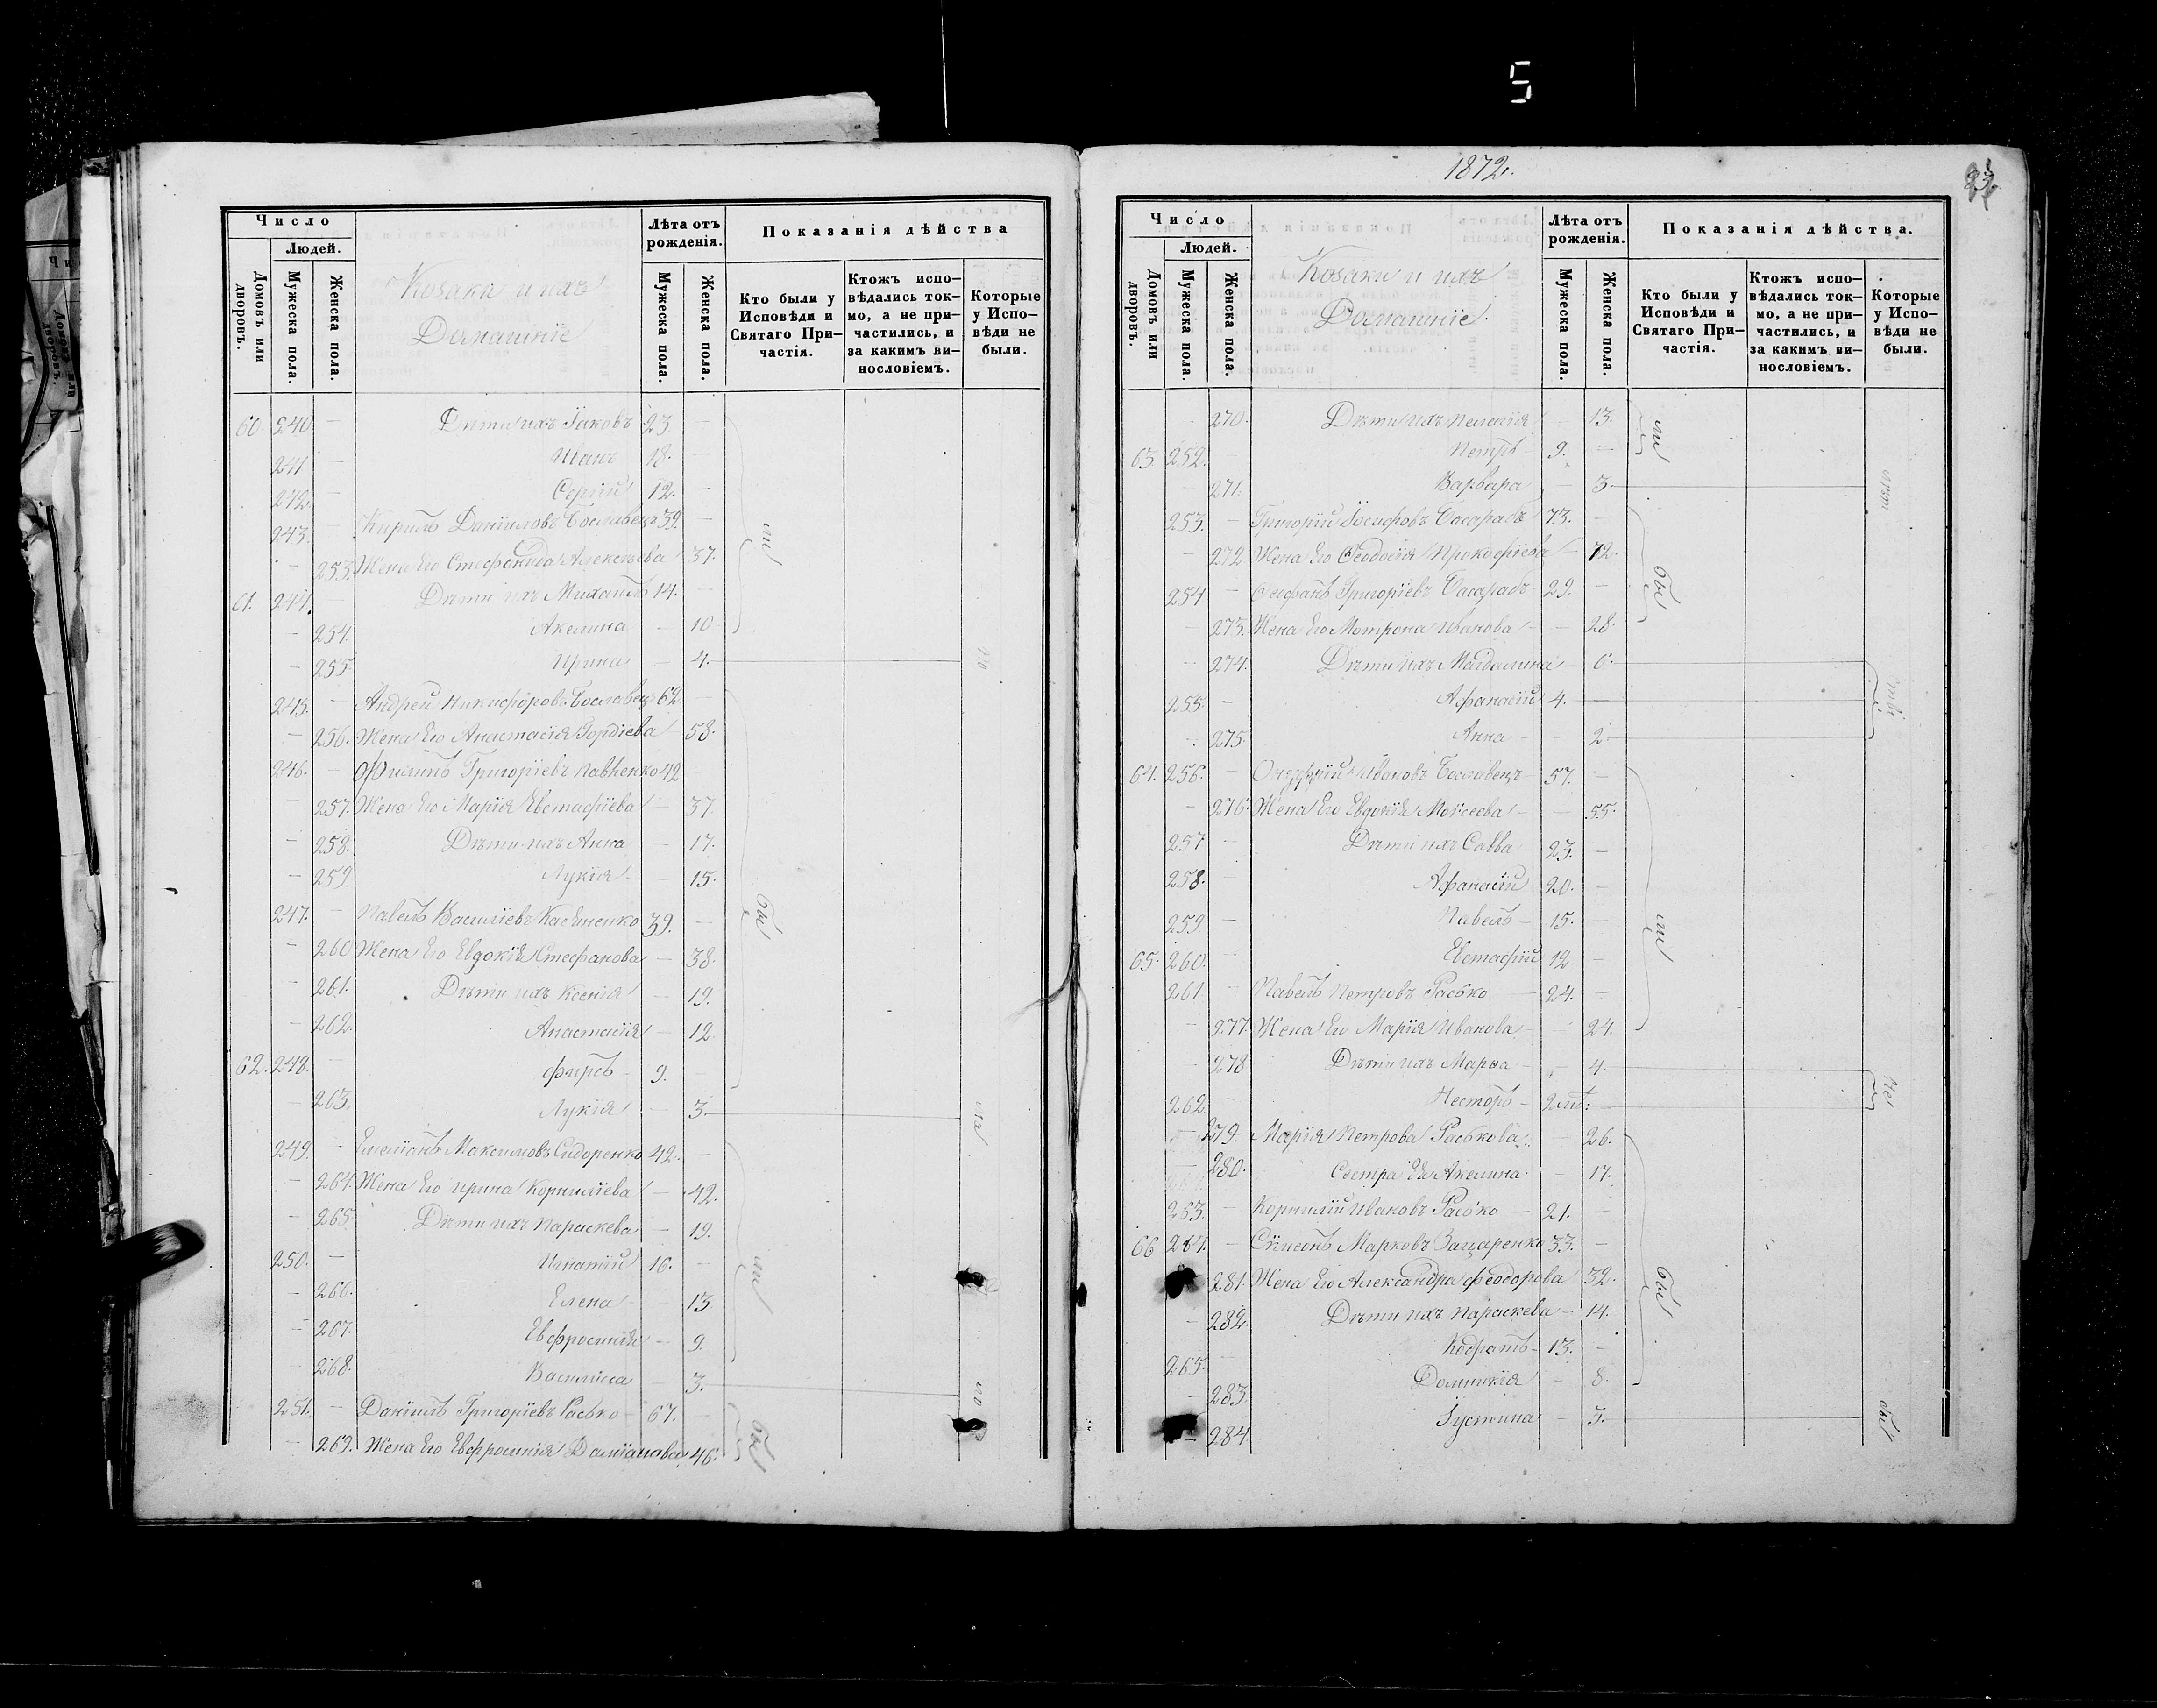 5
1872.
Число
Людей.
Домовъ или дворовъ.
Мужеска пола.
Женска пола.
Козаки и ихъ
Домашніе
Лѣта отъ рожденія.
Мужеска пола.
Женска пола.
Показанія дѣйства
Кто были у Исповѣди и Святаго Причастія.
Ктожъ исповѣдались токмо, а не причастились, и за какимъ винословіемъ.
Которые у Исповѣди не были.
60. 240. — Дѣти ихъ Іаковъ 23 —
241 — Иванъ 18. —
242. — Сергій 12. —
243. — Кирилъ Даніиловъ Бославецъ 39. —
— 253. Жена Его Стефанида Алексѣева 37.
61. 244. — Дѣти ихъ Михаилъ 14. —
— 254. Акелина — 10
— 255. Ирина — 4.
245. — Андрей Никифоровъ Бославецъ 62 —
— 256. Жена Его Анастасія Гордіева — 58.
246. — Филипъ Григоріевъ Павленко 42 —
— 257. Жена Его Марія Евстафіева — 37
— 258. Дѣти ихъ Анна — 17.
— 259. Лукія — 15.
247. — Павелъ Василіевъ 39. —
— 260 Жена Его Евдокія Стефанова — 38.
— 261. Дѣти ихъ Ксенія — 19.
— 262. Анастасія — 12.
62. 248. — Фирсъ 9. —
— 263. Лукія — 3.
249. — Емеліанъ Максимовъ Сидоренко 42. —
— 264. Жена Его Ирина Корниліева — 42.
— 265. Дѣти ихъ Параскева — 19.
250. — Игнатій 16. —
— 266. Елена — 13
— 267. Евфросинія — 9.
— 268. Василиса — 3.
251. — Даніилъ Григоріевъ Расько 67. —
— 269. Жена Его Евфросинія Даміанова 46.
Число
Людей.
Домовъ или дворовъ.
Мужеска пола.
Женска пола.
Козаки и ихъ
Домашніе.
Лѣта отъ рожденія.
Мужеска пола.
Женска пола.
Показанія дѣйства.
Кто были у Исповѣди и Святаго Причастія.
Ктожъ исповѣдались токмо, а не причастились, и за какимъ винословіемъ.
Которые у Исповѣди не были.
270. Дѣти ихъ Пелагія — 13.
63 252. — Петръ 9. —
271. Варвара — 3.
253. — Григорій Іосифовъ 73. —
— 272 Жена Его Феодосія Прокофіева — 72.
254 — Феофанъ Григоріевъ 29. —
— 273. Жена Его Мотрона Иванова — 28.
— 274. Дѣти ихъ Магдалина — 6.
255. — Афанасій 4. —
275. Анна — 2.
64. 256. — Онуфрій Ивановъ Бославецъ 57. —
— 276. Жена Его Евдокія Моисеева — 55.
257 — Дѣти ихъ Савва 23. —
258. — Афанасій 20. —
259 — Павелъ 15. —
65. 260. — Евстафій 12 —
261 — Павелъ Петровъ Расько 24. —
— 277. Жена Его Марія Иванова — 24.
— 278 Дѣти ихъ Марѳа — 4.
262. — Несторъ
— 279. Марія Петрова Раськова — 26.
— 280. Сестра Ея Акелина — 17.
263. — Корнилій Ивановъ Расько 21. —
66 264. — Симеонъ Марковъ 33. —
281. Жена Его Александра Феодорова 32.
— 282. Дѣти ихъ Параскева — 14.
265. — Кодратъ 13. —
283 Домникія — 8.
— 284 Іустина — 3.